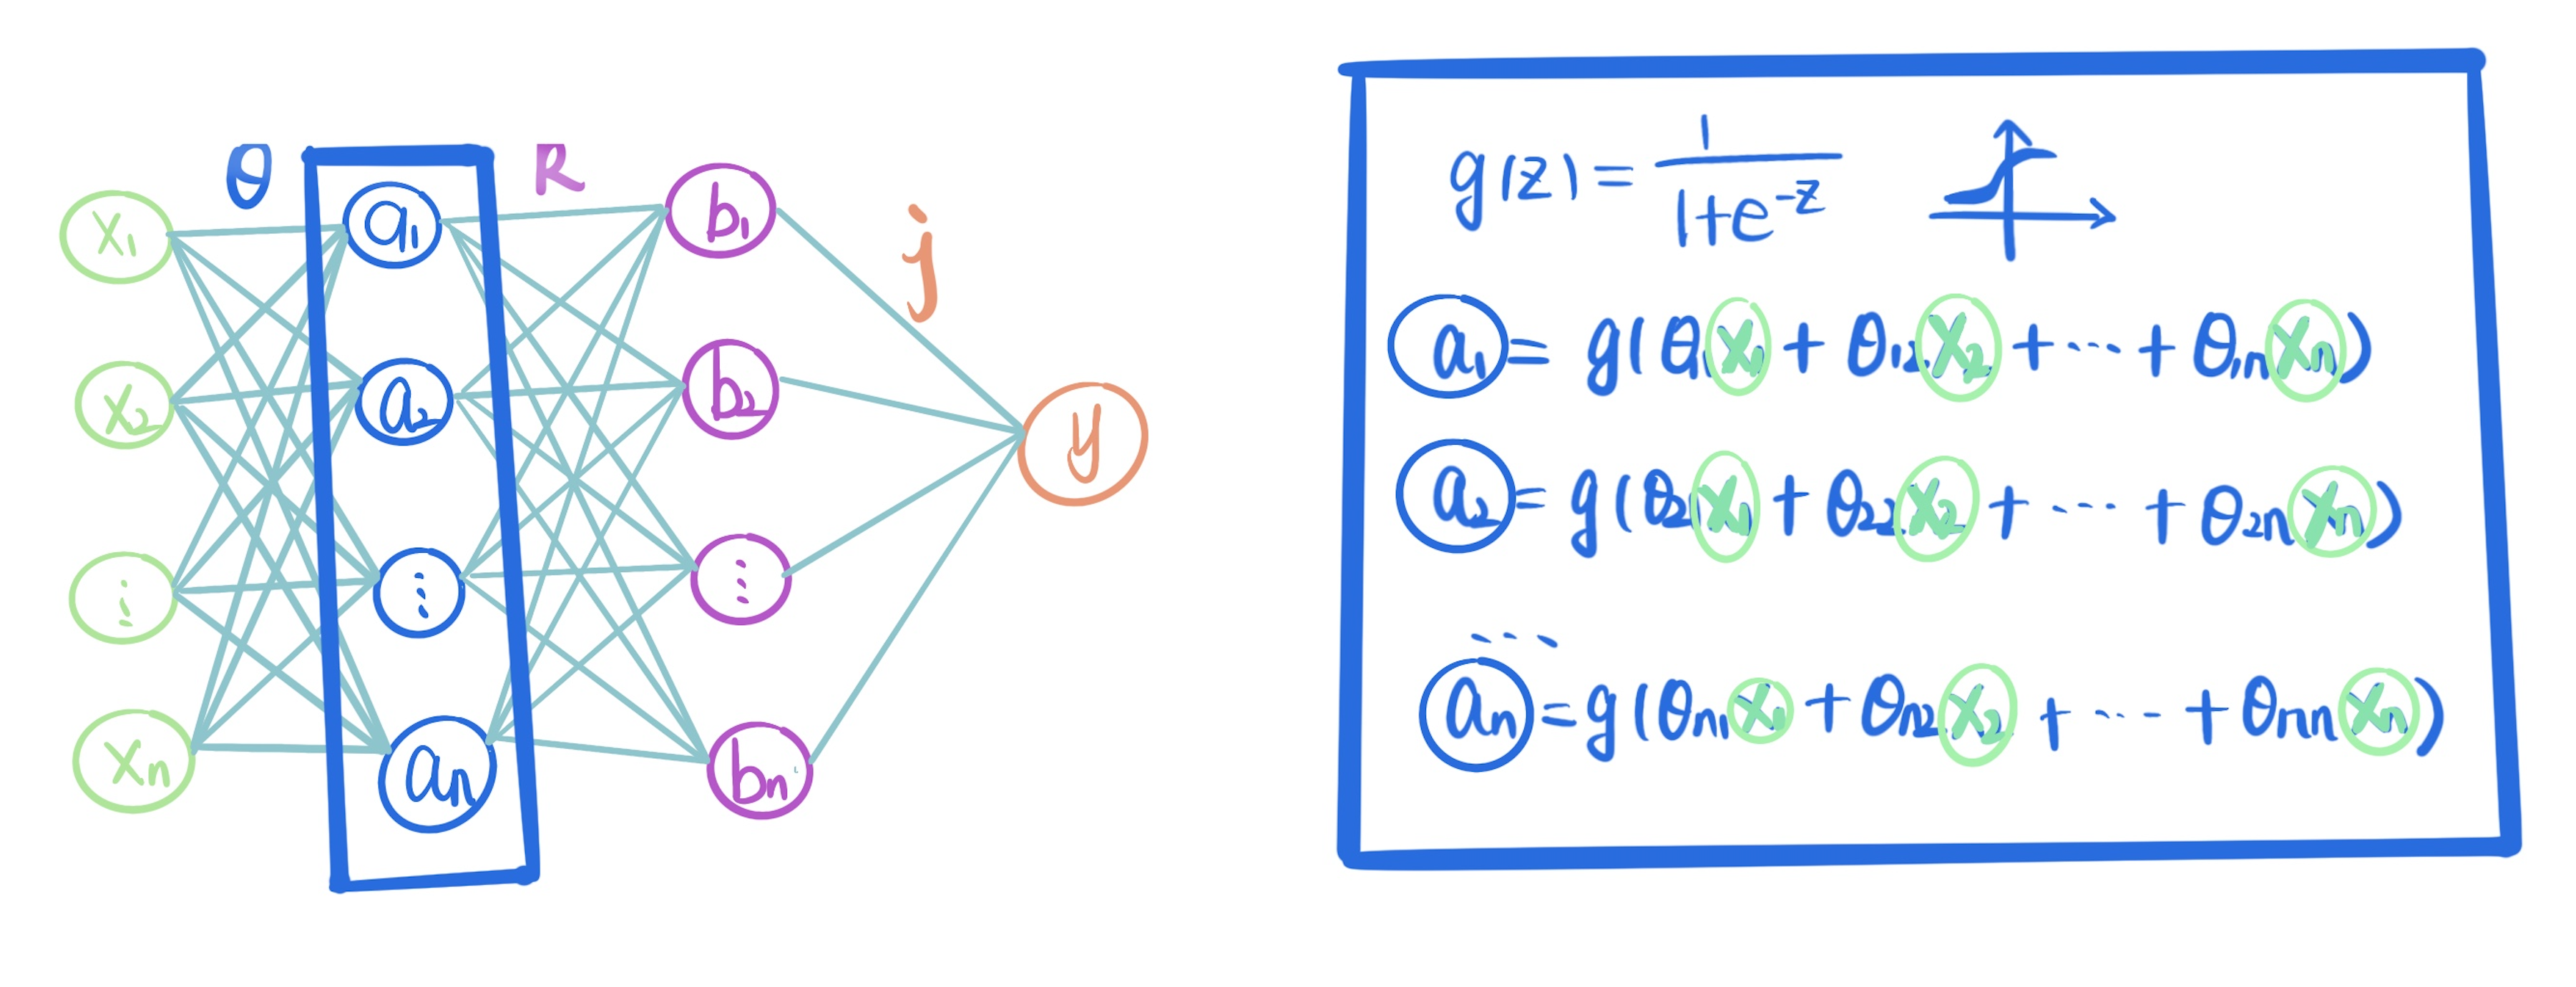 θ R j
x₁ a₁ b₁
x₂ a₂ b₂ y
⋮ ⋮ ⋮
xₙ aₙ bₙ
g(z) = 1/(1+e^-z)
a₁ = g(θ₁₁x₁ + θ₁₂x₂ + ... + θ₁ₙxₙ)
a₂ = g(θ₂₁x₁ + θ₂₂x₂ + ... + θ₂ₙxₙ)
...
aₙ = g(θₙ₁x₁ + θₙ₂x₂ + ... + θₙₙxₙ)